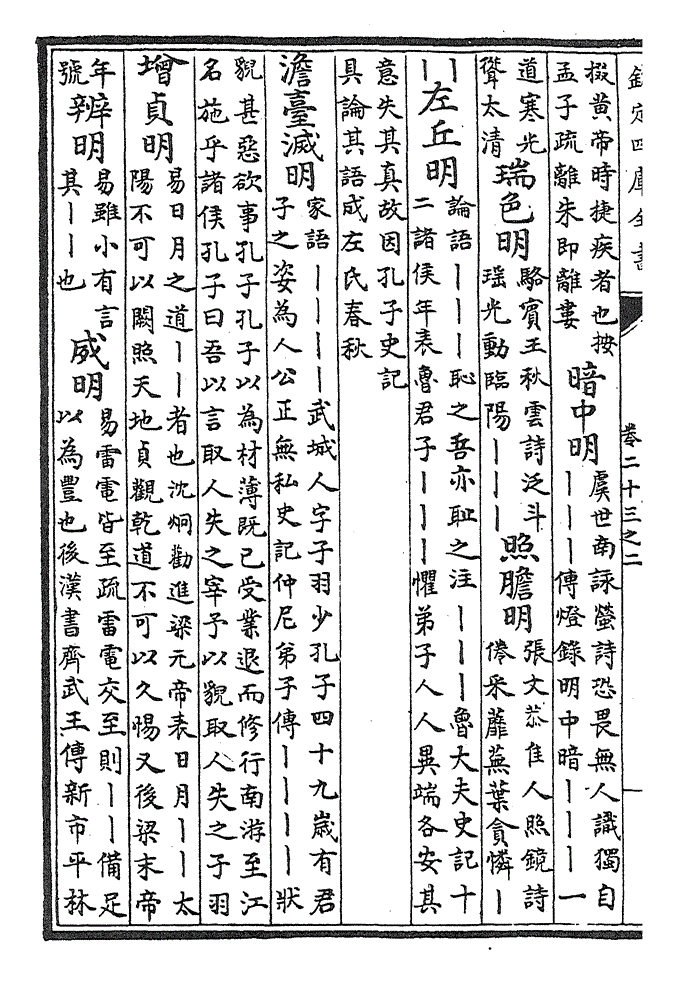 欽定四庫全書 卷二十三之二
掇黄帝時捷疾者也按
孟子疏離朱即離婁
暗中明
虞世南詠螢詩恐畏無人識獨自
丨丨丨傳燈錄明中暗丨丨丨一
道寒光
聳太清
瑞色明
駱賓王秋雲詩泛斗
瑶光動臨陽丨丨丨
照膽明
張文恭佳人照鏡詩
倦采蘼蕪葉貪憐丨
丨
丨
左丘明
論語丨丨丨恥之吾亦恥之注丨丨丨魯大夫史記十
二諸侯年表魯君子丨丨丨懼弟子人人異端各安其
意失其真故因孔子史記
具論其語成左氏春秋
澹臺滅明
家語丨丨丨丨武城人字子羽少孔子四十九歲有君
子之姿為人公正無私史記仲尼弟子傳丨丨丨丨狀
貌甚惡欲事孔子孔子以為材薄既已受業退而修行南游至江
名施乎諸侯孔子曰吾以言取人失之宰予以貌取人失之子羽
增貞明
易日月之道丨丨者也沈炯勸進梁元帝表日月丨丨太
陽不可以闕照天地貞觀乾道不可以久惕又後梁末帝
年
號
辨明
易雖小有言
其丨丨也
威明
易雷電皆至疏雷電交至則丨丨備足
以為豐也後漢書齊武王傳新市平林